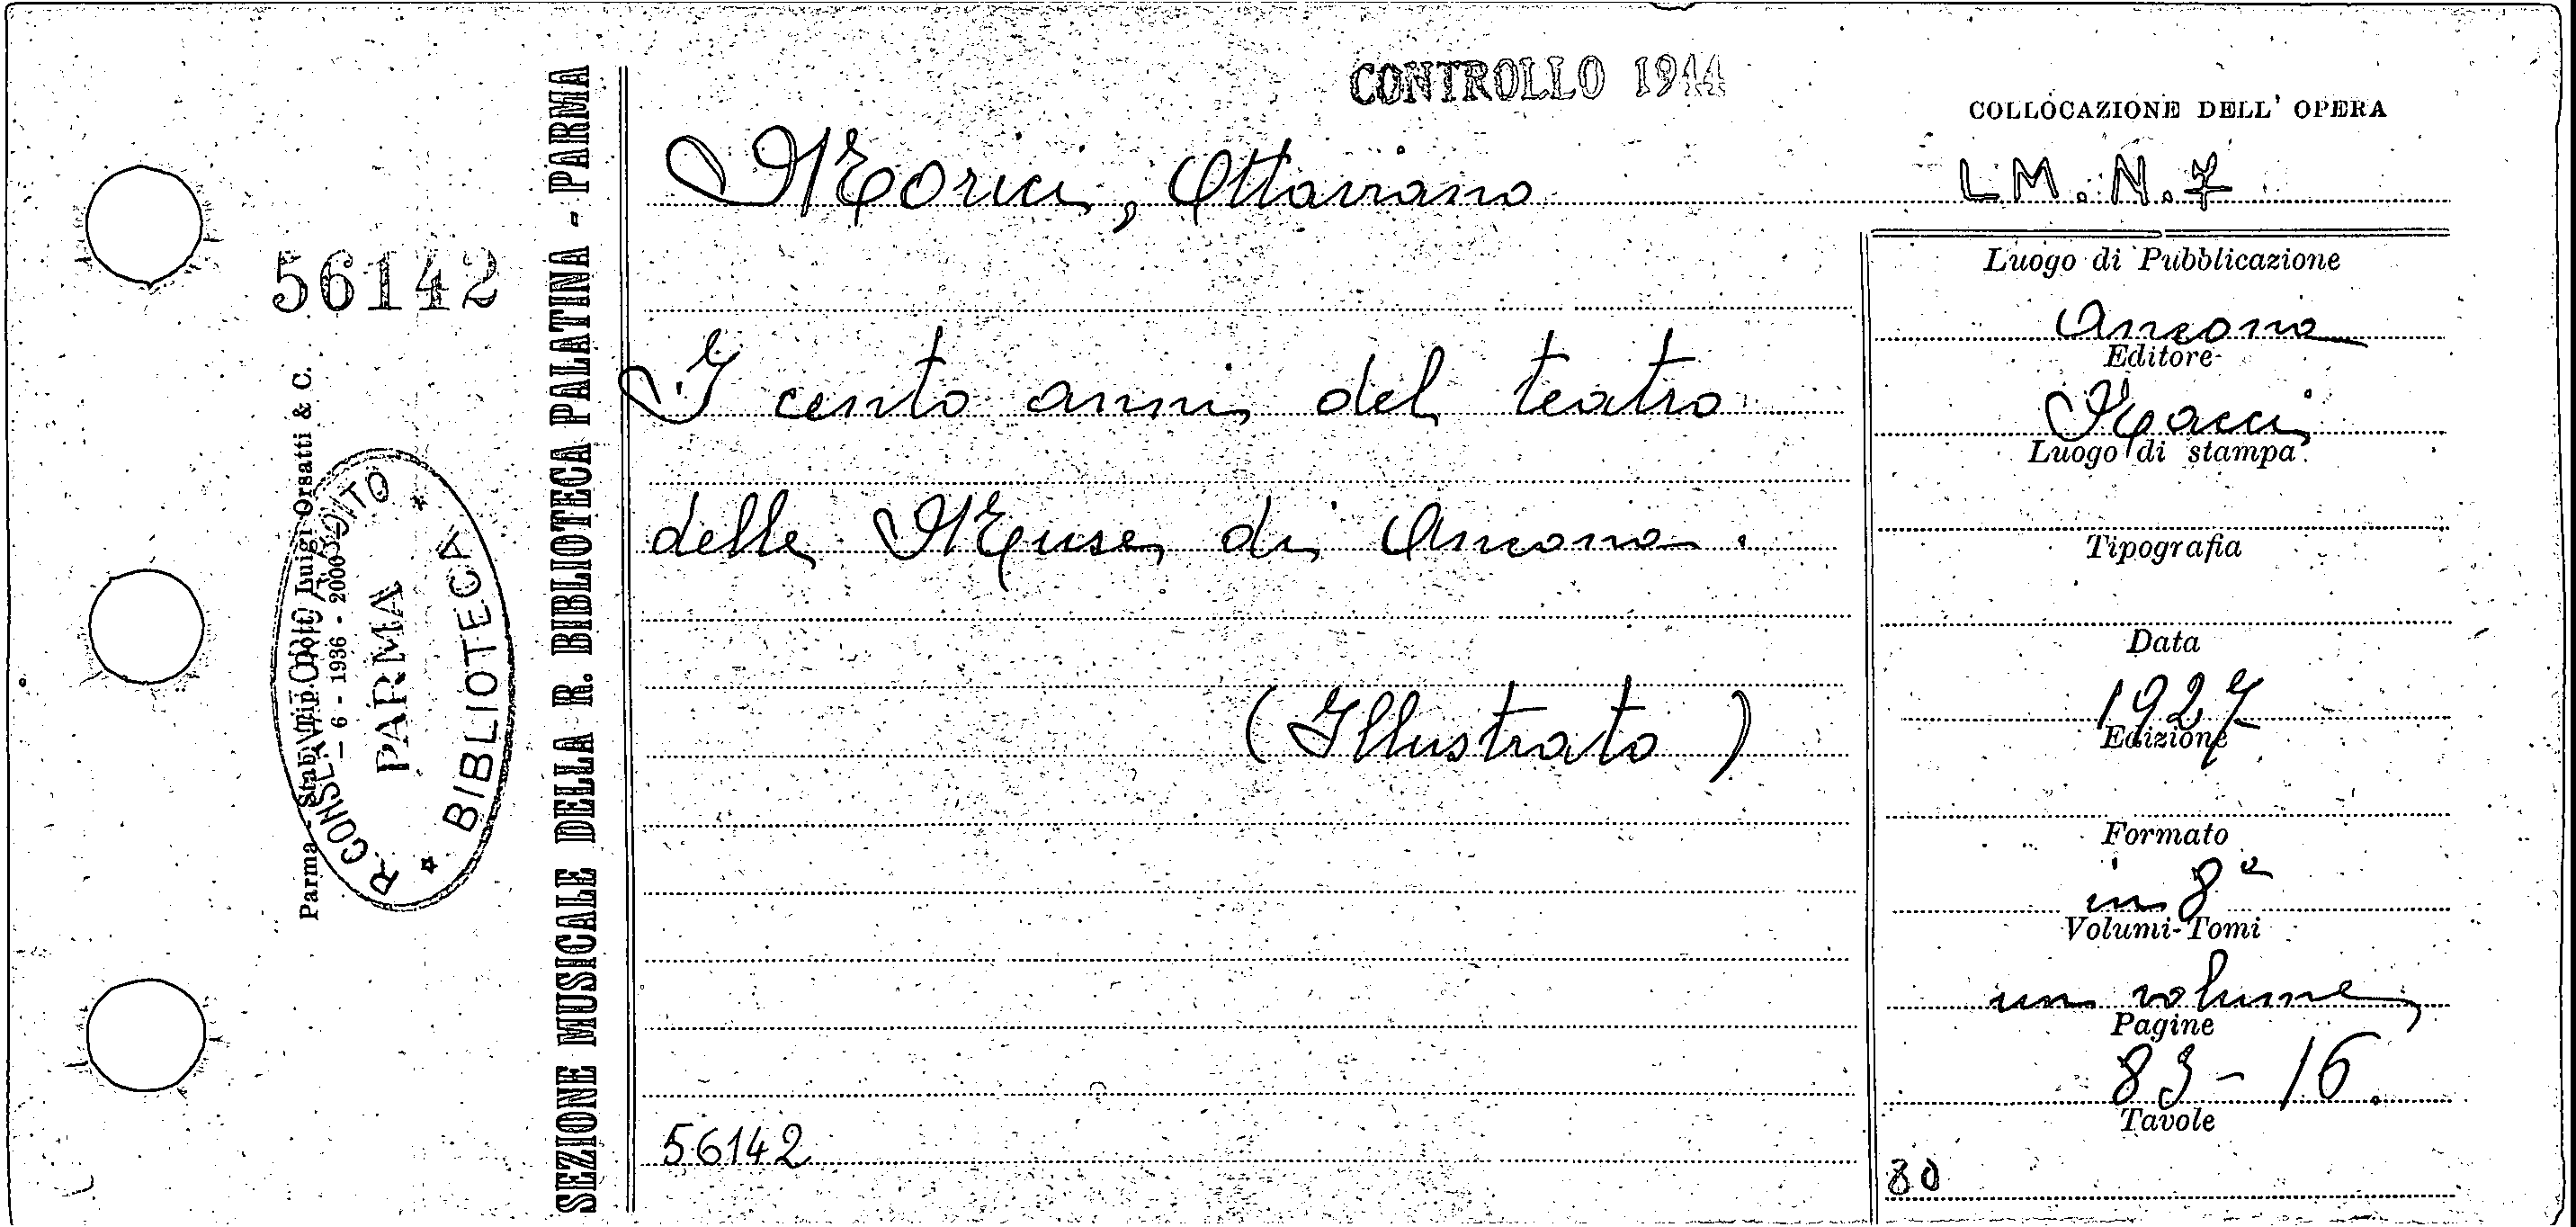 CONTROLLO 1944
COLLOCAZIONE DELL' OPERA
Morici, Ottaviano
L M. N. 7
56142
SEZIONE MUSICALE DELLA R. BIBLIOTECA PALATINA - PARMA
Parma - Stab. Tip. Luigi Orsatti & C.
- 6 - 1936 - 2000
R. CONSERV
PARMA
BIBLIOTECA
I cento anni del teatro
delle Muse di Ancona.
(Illustrato)
56142
Luogo di Pubblicazione
Ancona
Editore
Luogo di stampa
Tipografia
Data
1927
Edizione
Formato
in 8°
Volumi-Tomi
un volume
Pagine
83 - 16.
Tavole
80